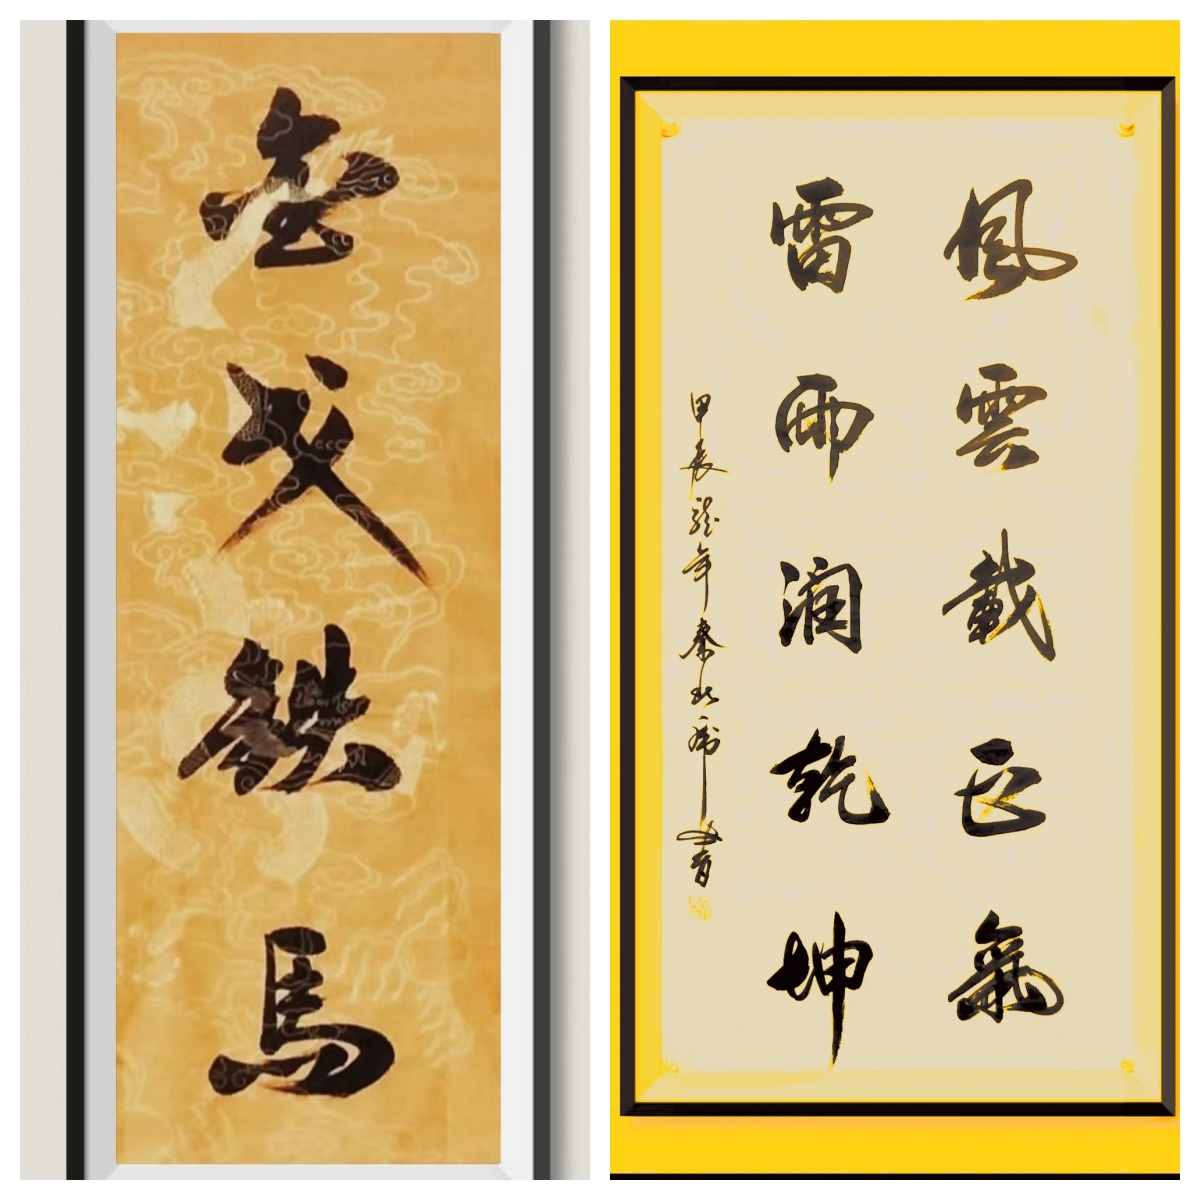 金戈鐵馬
風雲載正氣
雷雨潤乾坤
甲辰龍年秦書